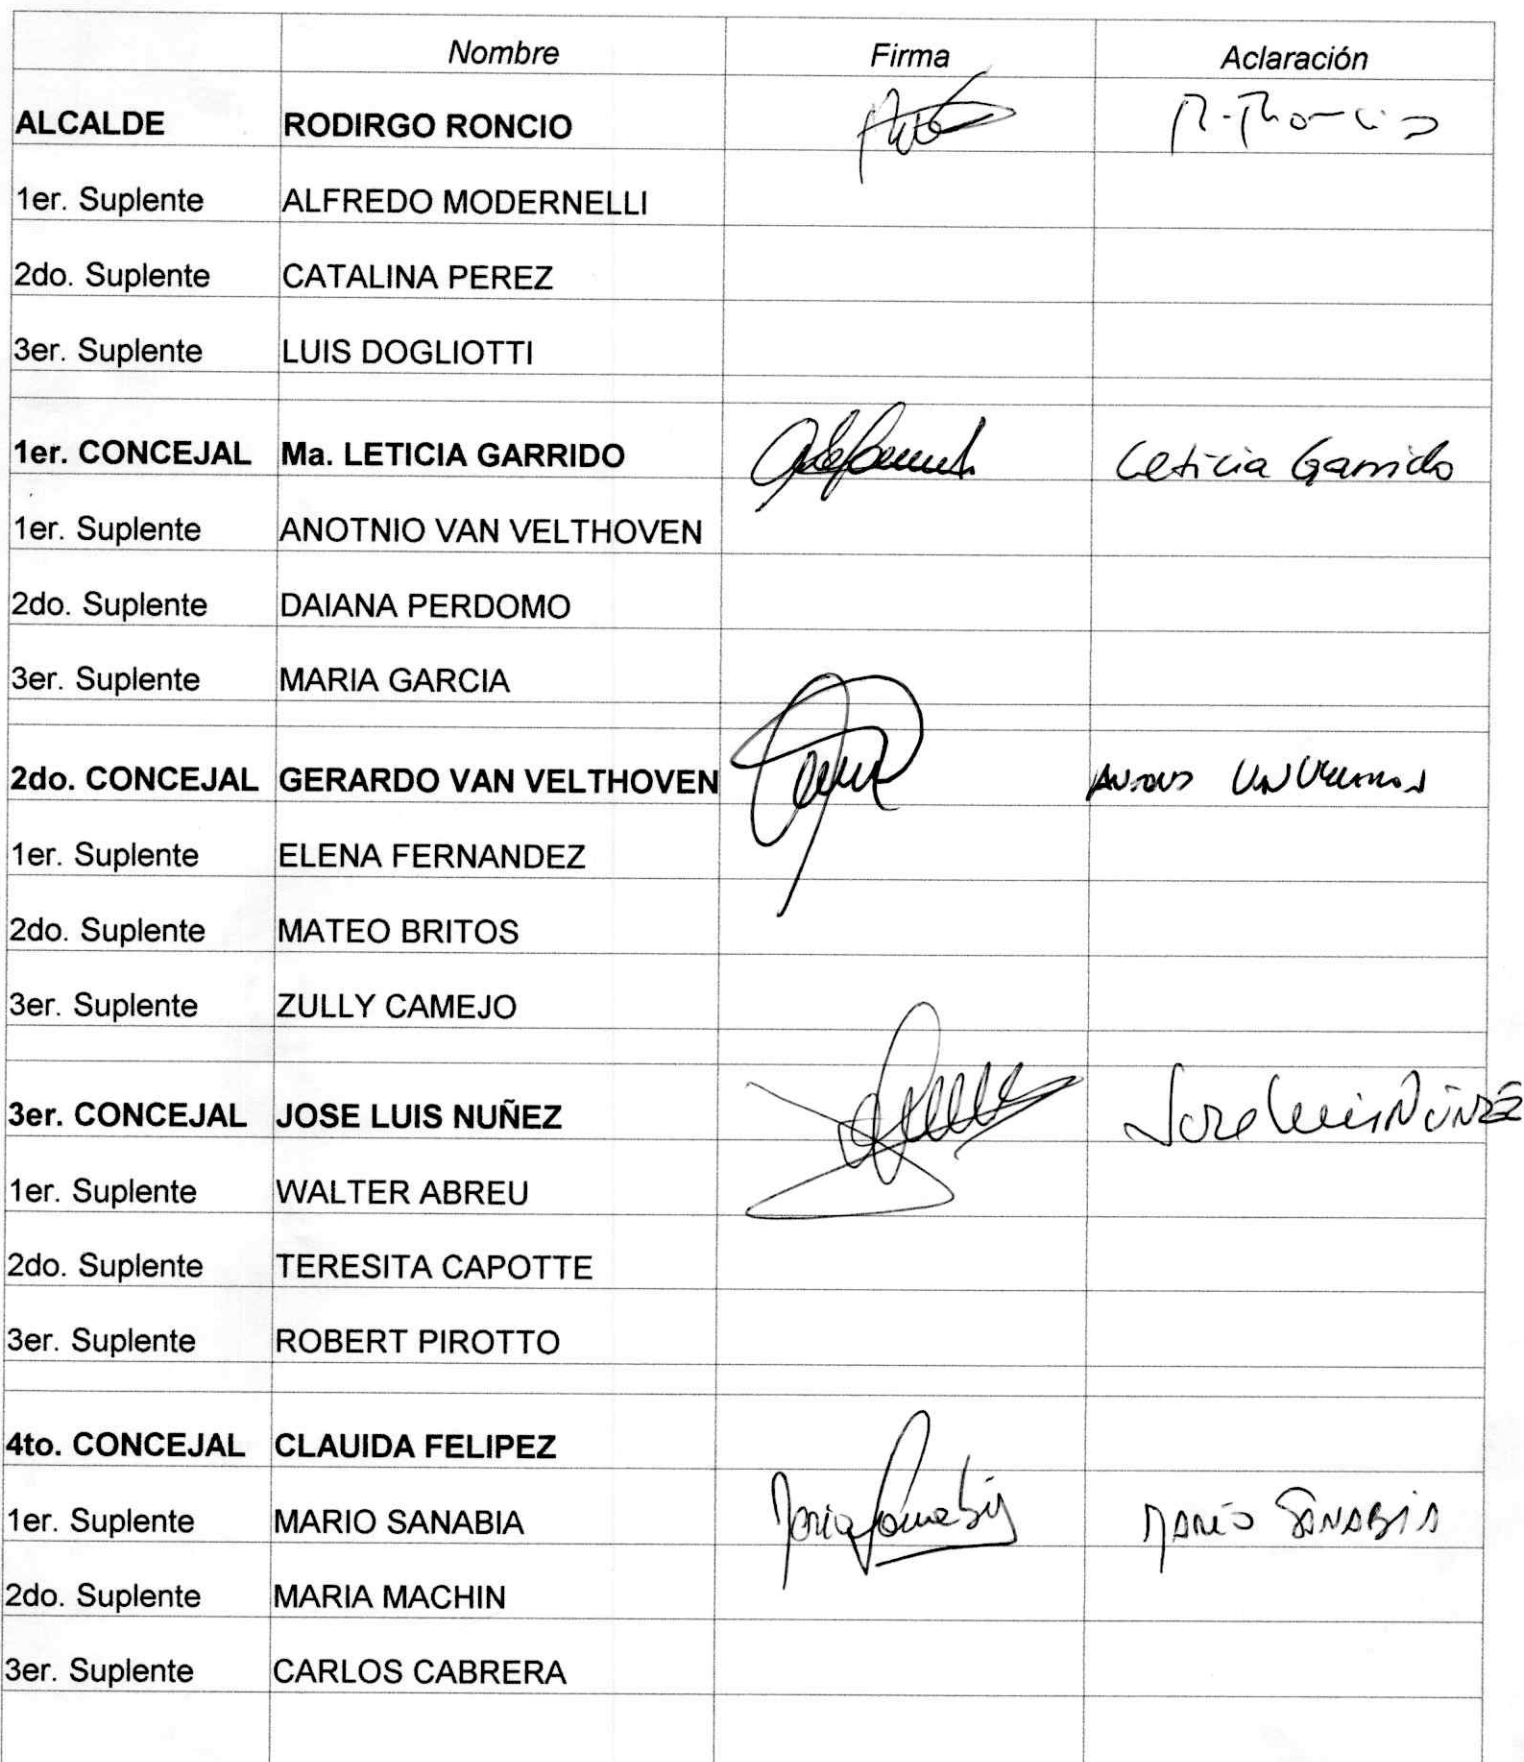 Nombre Firma Aclaración
ALCALDE RODIRGO RONCIO R. Roncio
1er. Suplente ALFREDO MODERNELLI
2do. Suplente CATALINA PEREZ
3er. Suplente LUIS DOGLIOTTI
1er. CONCEJAL Ma. LETICIA GARRIDO Leticia Garrido
1er. Suplente ANOTNIO VAN VELTHOVEN
2do. Suplente DAIANA PERDOMO
3er. Suplente MARIA GARCIA
2do. CONCEJAL GERARDO VAN VELTHOVEN
1er. Suplente ELENA FERNANDEZ
2do. Suplente MATEO BRITOS
3er. Suplente ZULLY CAMEJO
3er. CONCEJAL JOSE LUIS NUÑEZ Jose Luis NÚNEZ
1er. Suplente WALTER ABREU
2do. Suplente TERESITA CAPOTTE
3er. Suplente ROBERT PIROTTO
4to. CONCEJAL CLAUIDA FELIPEZ
1er. Suplente MARIO SANABIA Mario Sanabia MARIO SANABIA
2do. Suplente MARIA MACHIN
3er. Suplente CARLOS CABRERA